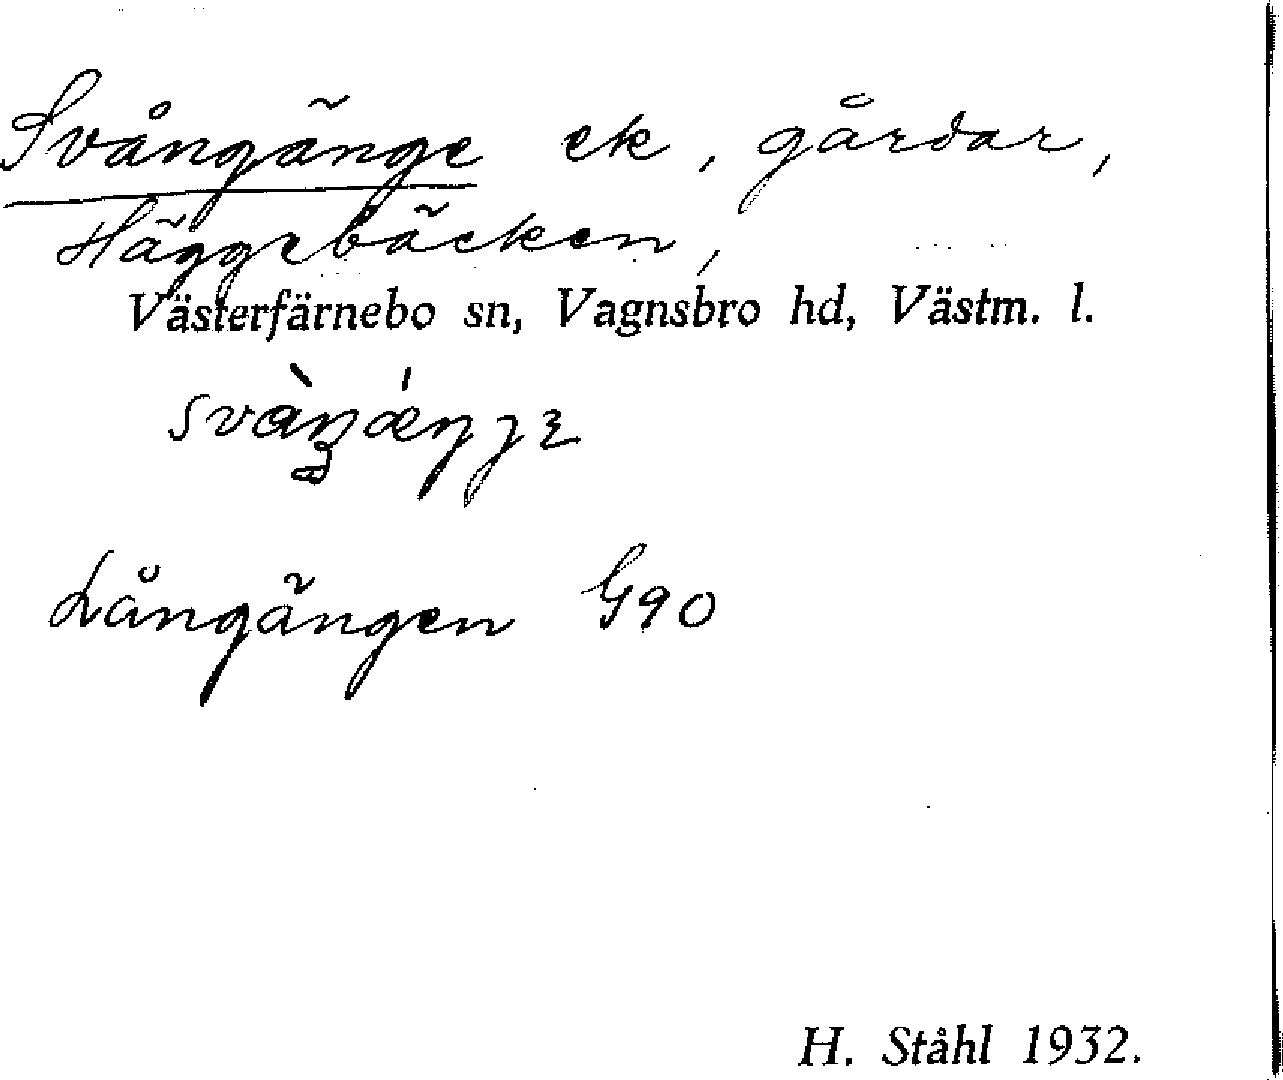 Svångänge ek, gårdar,
Häggebäcken,
Västerfärnebo sn, Vagnsbro hd, Västm. l.
Långängen G90
H. Ståhl 1932.